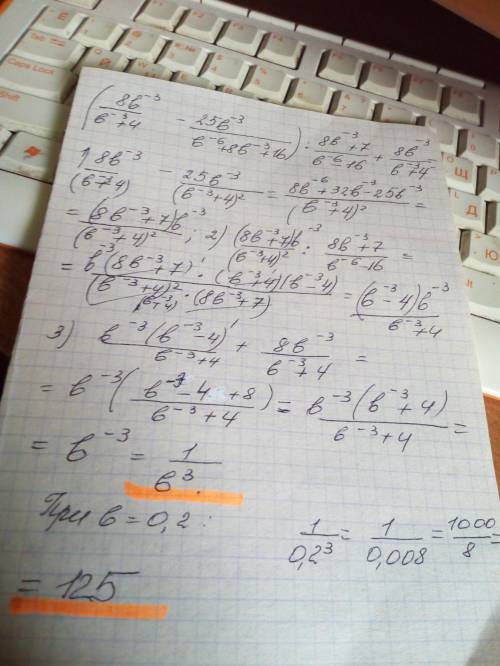 (8b⁻³/(b⁻³+4) - 25b⁻³/(b⁻⁶+8b⁻³+16)) : (8b⁻³+7)/(b⁻⁶-16) + 8b⁻³/(b⁻³+4)
1) 8b⁻³/(b⁻³+4) - 25b⁻³/(b⁻³+4)² = (8b⁻⁶+32b⁻³-25b⁻³)/(b⁻³+4)² =
= (8b⁻³+7)b⁻³/(b⁻³+4)² ; 2) (8b⁻³+7)b⁻³/(b⁻³+4)² : (8b⁻³+7)/(b⁻⁶-16) =
= b⁻³(8b⁻³+7)·(b⁻³+4)(b⁻³-4)/((b⁻³+4)²·(8b⁻³+7)) = (b⁻³-4)b⁻³/(b⁻³+4)
3) b⁻³(b⁻³-4)/(b⁻³+4) + 8b⁻³/(b⁻³+4) =
= b⁻³((b⁻³-4+8)/(b⁻³+4)) = b⁻³(b⁻³+4)/(b⁻³+4) =
= b⁻³ = 1/b³.
При b = 0,2 :
1/0,2³ = 1/0,008 = 1000/8 =
= 125
Caps Lock
Shift